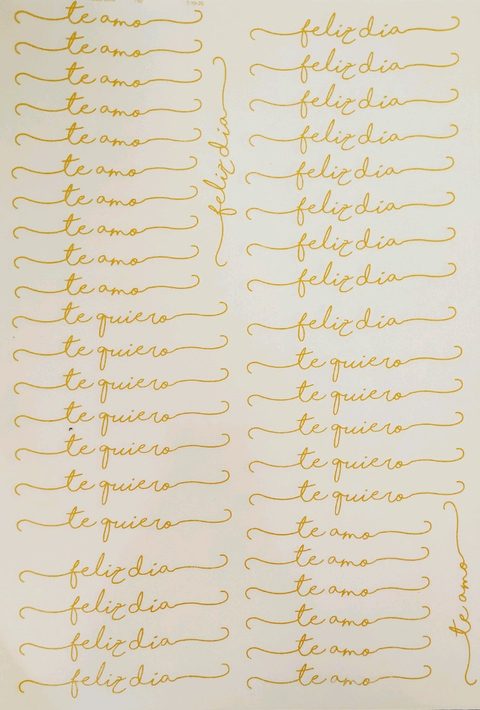 te amo
te amo
te amo
te amo
te amo
te amo
te amo
te amo
te amo
te amo
te quiero
te quiero
te quiero
te quiero
te quiero
te quiero
te quiero
feliz dia
feliz dia
feliz dia
feliz dia
feliz dia
feliz dia
feliz dia
feliz dia
feliz dia
feliz dia
feliz dia
feliz dia
feliz dia
feliz dia
te quiero
te quiero
te quiero
te quiero
te quiero
te amo
te amo
te amo
te amo
te amo
te amo
te amo